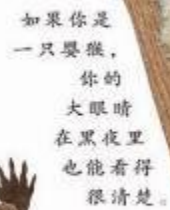 如果你是
一只婴猴，
你的
大眼睛
在黑夜里
也能看得
很清楚。